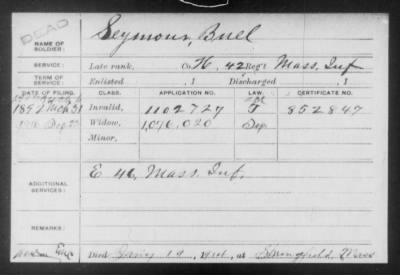 DEAD
NAME OF SOLDIER: Seymour, Buel
SERVICE: Late rank, Co. H, 42 Reg't Mass. Inf
TERM OF SERVICE: Enlisted , 1 Discharged , 1
DATE OF FILING. CLASS. APPLICATION NO. LAW. CERTIFICATE NO.
1892 Mch 31 Invalid, 1102727 J 852847
Widow, 1,096,020
Minor,
ADDITIONAL SERVICES: E 46, Mass. Inf.
REMARKS:
Died 19, at Springfield, Mass